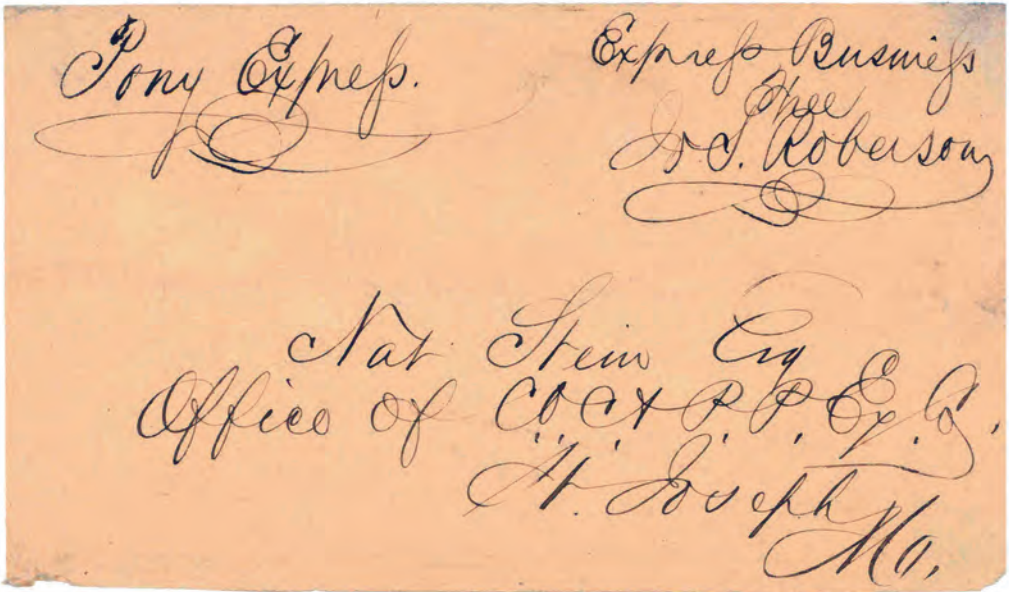 Pony Express.
Express Business
Free
Jo S. Roberson
Nat Stein Esq
Office of C.O.C. & P.P. Ex. Co.
St. Joseph
Mo.